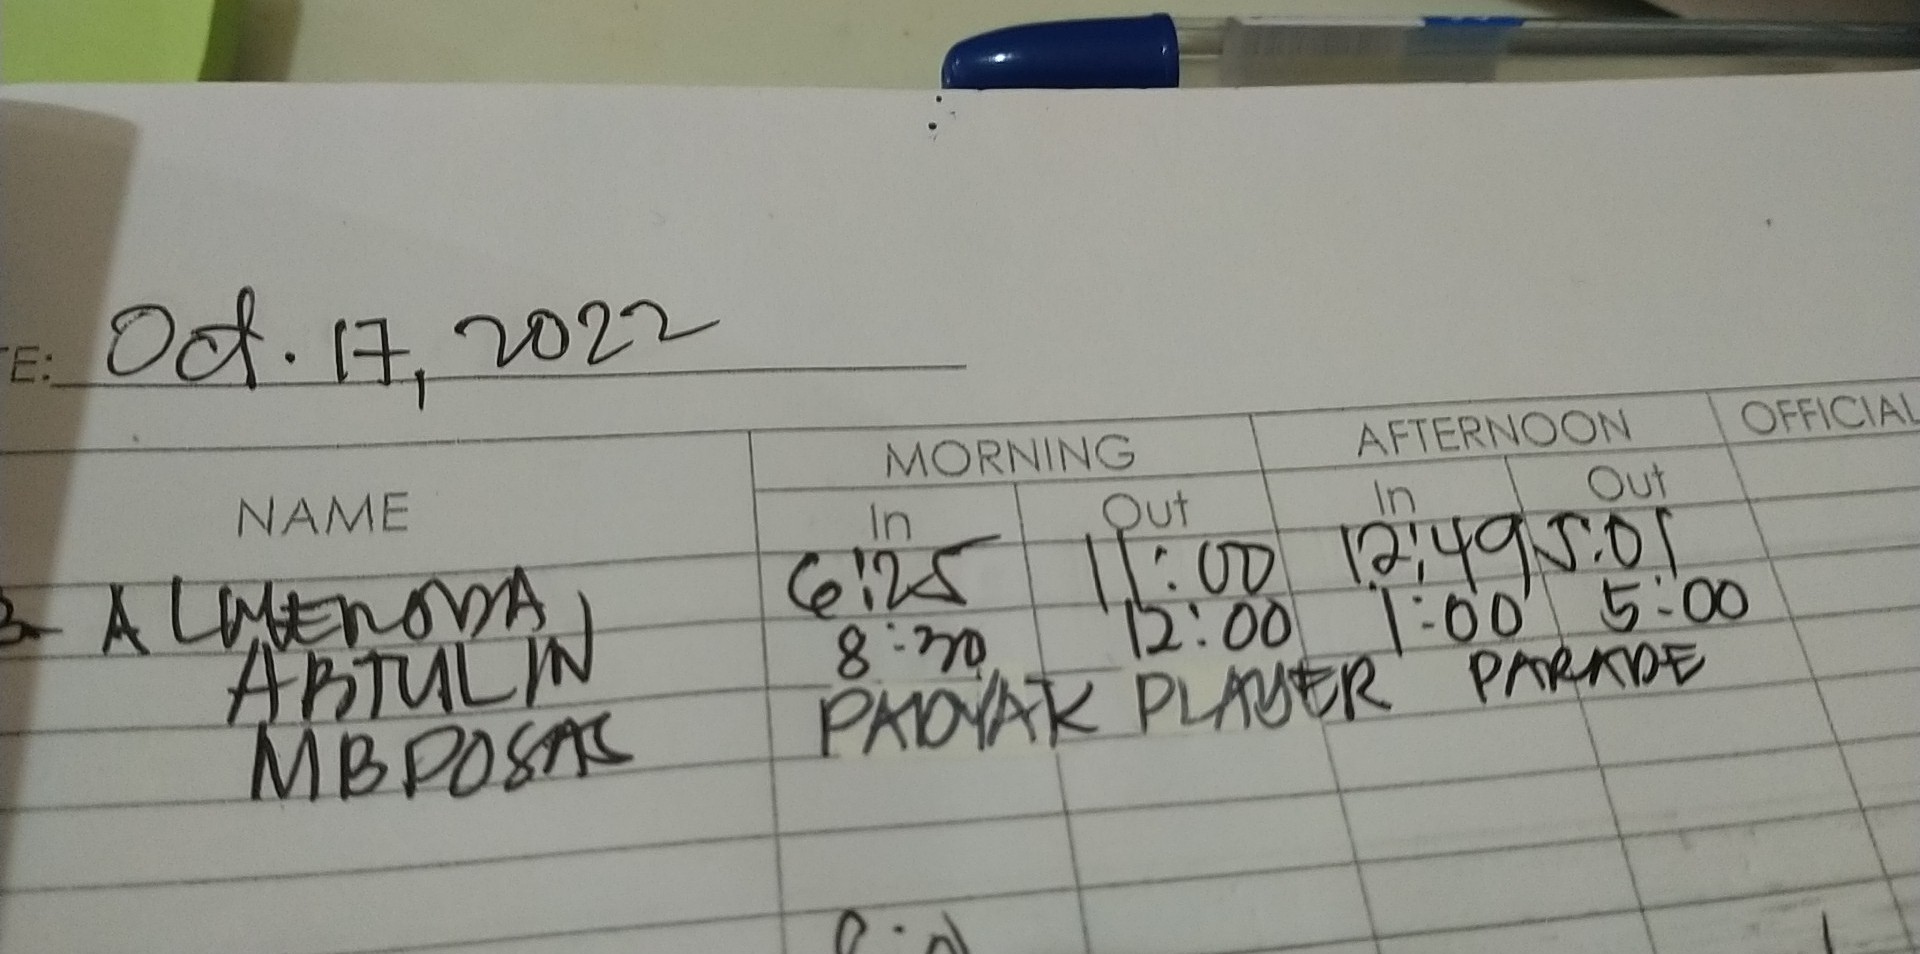 E: Oct. 17, 2022
NAME MORNING AFTERNOON OFFICIAL
In Out In Out
6:25 11:00 12:49 5:01
ABTULIN 8:30 12:00 1:00 5:00
MB POSAS PADYAK PLAYER PARADE